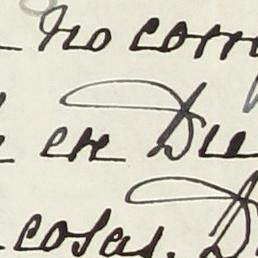 no corr
en Die
cosas. D